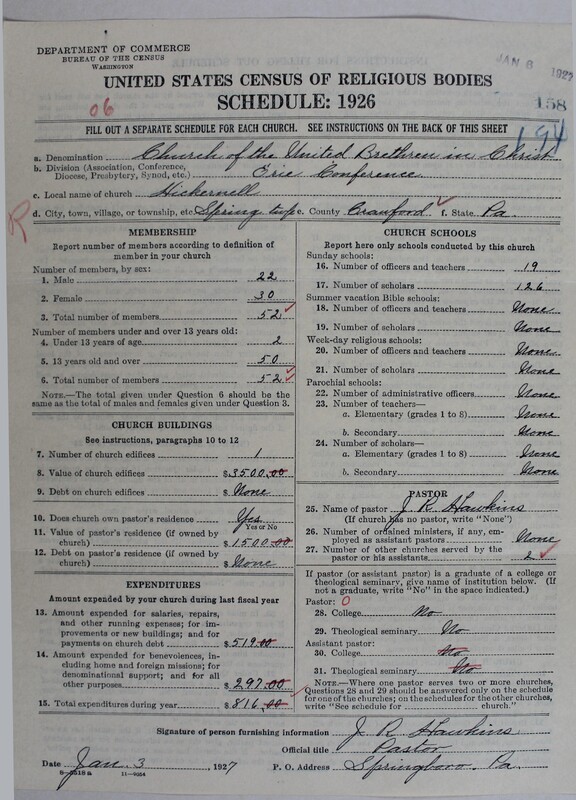 DEPARTMENT OF COMMERCE
BUREAU OF THE CENSUS
WASHINGTON
JAN 8 1927
UNITED STATES CENSUS OF RELIGIOUS BODIES
SCHEDULE: 1926
06
158
194
FILL OUT A SEPARATE SCHEDULE FOR EACH CHURCH. SEE INSTRUCTIONS ON THE BACK OF THIS SHEET
a. Denomination Church of the United Brethren in Christ
b. Division (Association, Conference, Diocese, Presbytery, Synod, etc.) Erie Conference
c. Local name of church Hickernell
R
d. City, town, village, or township, etc. Spring twp e. County Crawford ✓ f. State Pa.
MEMBERSHIP
Report number of members according to definition of member in your church
Number of members, by sex:
1. Male 22
2. Female 30
3. Total number of members 52 ✓
Number of members under and over 13 years old:
4. Under 13 years of age 2
5. 13 years old and over 50
6. Total number of members 52 ✓
NOTE.—The total given under Question 6 should be the same as the total of males and females given under Question 3.
CHURCH BUILDINGS
See instructions, paragraphs 10 to 12
7. Number of church edifices 1
8. Value of church edifices $3500.00
9. Debt on church edifices $ None
10. Does church own pastor's residence Yes
Yes or No
11. Value of pastor's residence (if owned by church) $1500.00
12. Debt on pastor's residence (if owned by church) $ None
EXPENDITURES
Amount expended by your church during last fiscal year
13. Amount expended for salaries, repairs, and other running expenses; for improvements or new buildings; and for payments on church debt $519.00
14. Amount expended for benevolences, including home and foreign missions; for denominational support; and for all other purposes $297.00
15. Total expenditures during year $816.00
CHURCH SCHOOLS
Report here only schools conducted by this church
Sunday schools:
16. Number of officers and teachers 19
17. Number of scholars 126
Summer vacation Bible schools:
18. Number of officers and teachers None
19. Number of scholars None
Week-day religious schools:
20. Number of officers and teachers None
21. Number of scholars None
Parochial schools:
22. Number of administrative officers None
23. Number of teachers—
a. Elementary (grades 1 to 8) None
b. Secondary None
24. Number of scholars—
a. Elementary (grades 1 to 8) None
b. Secondary None
PASTOR
25. Name of pastor J. R. Hawkins
(If church has no pastor, write "None")
26. Number of ordained ministers, if any, employed as assistant pastors None
27. Number of other churches served by the pastor or his assistants 2 ✓
If pastor (or assistant pastor) is a graduate of a college or theological seminary, give name of institution below. (If not a graduate, write "No" in the space indicated.)
Pastor: 0
28. College No
29. Theological seminary No
Assistant pastor:
30. College No
31. Theological seminary No
NOTE.—Where one pastor serves two or more churches, Questions 28 and 29 should be answered only on the schedule for one of the churches; on the schedules for the other churches, write "See schedule for ............ church."
Signature of person furnishing information J. R. Hawkins
Official title Pastor
Date Jan. 3, 1927 P. O. Address Springboro. Pa.
8—5518 a 11—9054